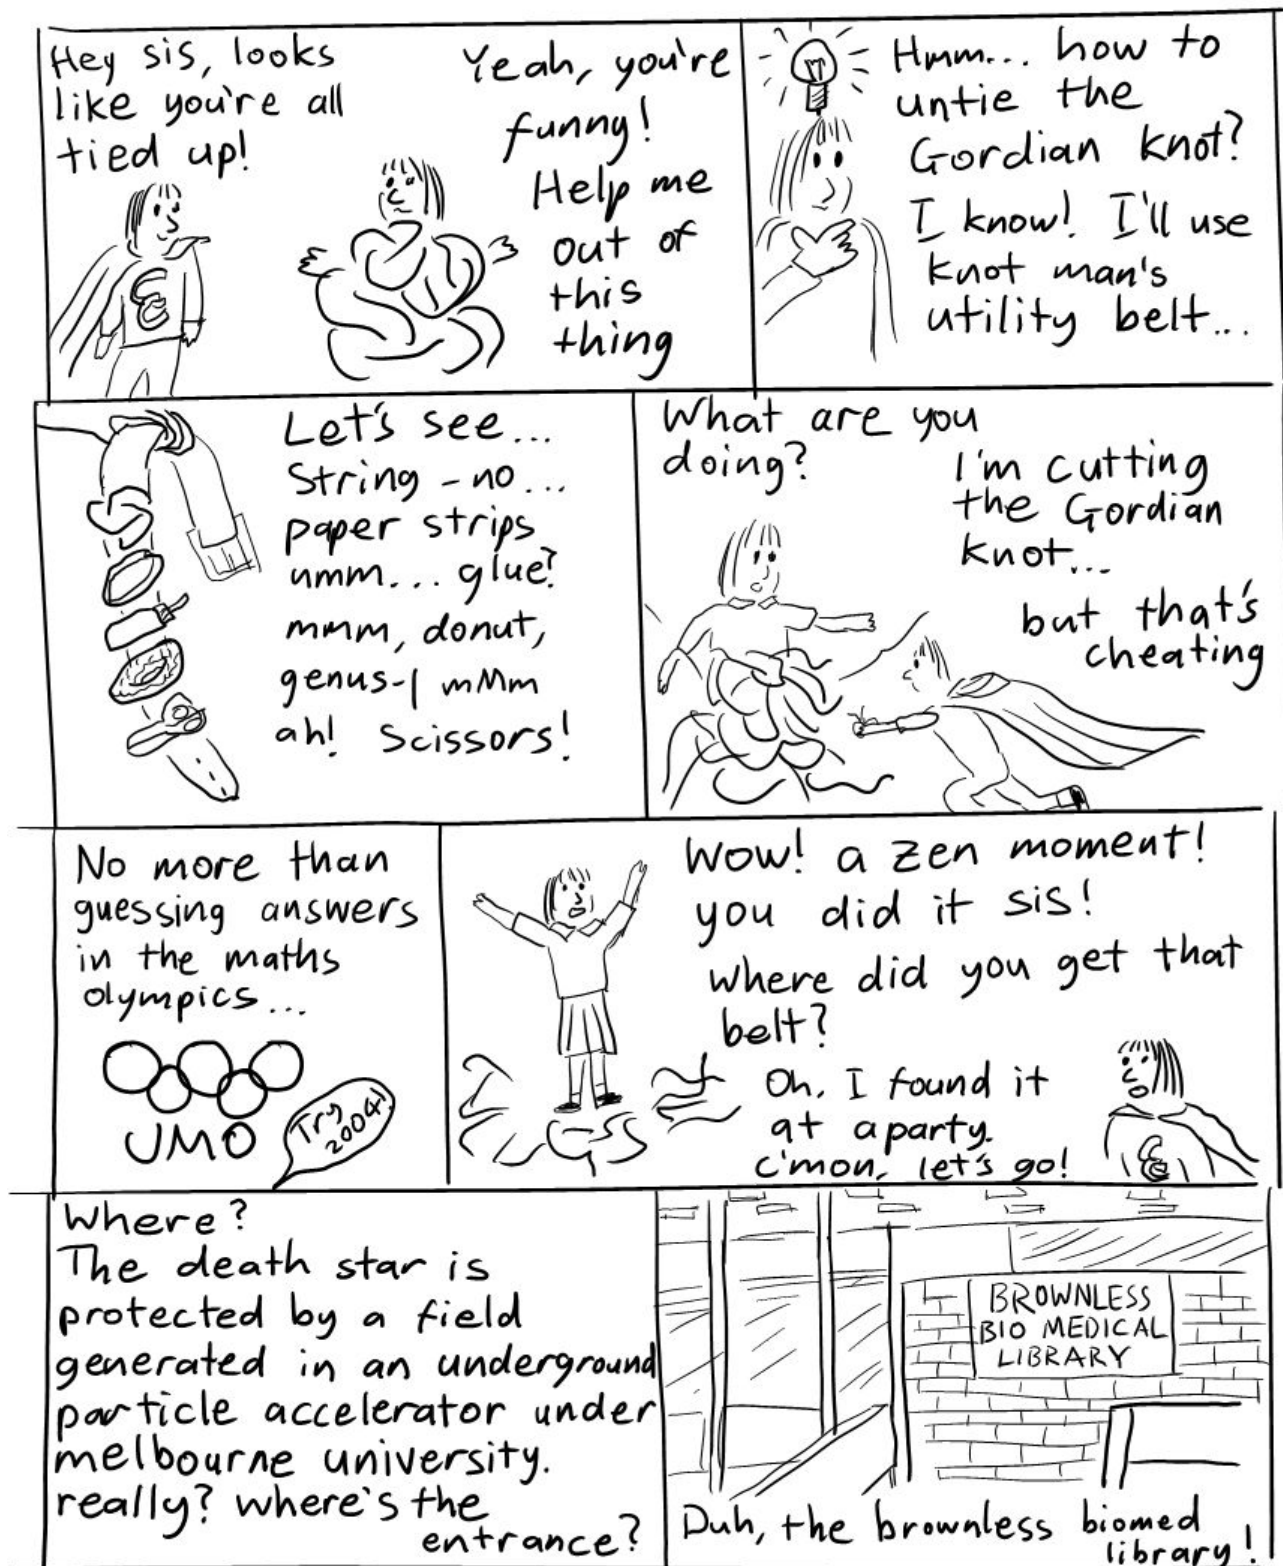 Hey sis, looks
like you're all
tied up!
Yeah, you're
funny!
Help me
out of
this
thing
Hmm... how to
untie the
Gordian knot?
I know! I'll use
knot man's
utility belt...
Let's see...
String - no...
paper strips
umm... glue?
mmm, donut,
genus-1 mMm
ah! Scissors!
What are you
doing?
I'm cutting
the Gordian
knot...
but that's
cheating
No more than
guessing answers
in the maths
olympics...
UMO
Try
2004!
Wow! a zen moment!
you did it sis!
where did you get that
belt?
Oh, I found it
at a party.
c'mon, let's go!
Where?
The death star is
protected by a field
generated in an underground
particle accelerator under
melbourne university.
really? where's the
entrance?
BROWNLESS
BIO MEDICAL
LIBRARY
Duh, the brownless biomed
library!